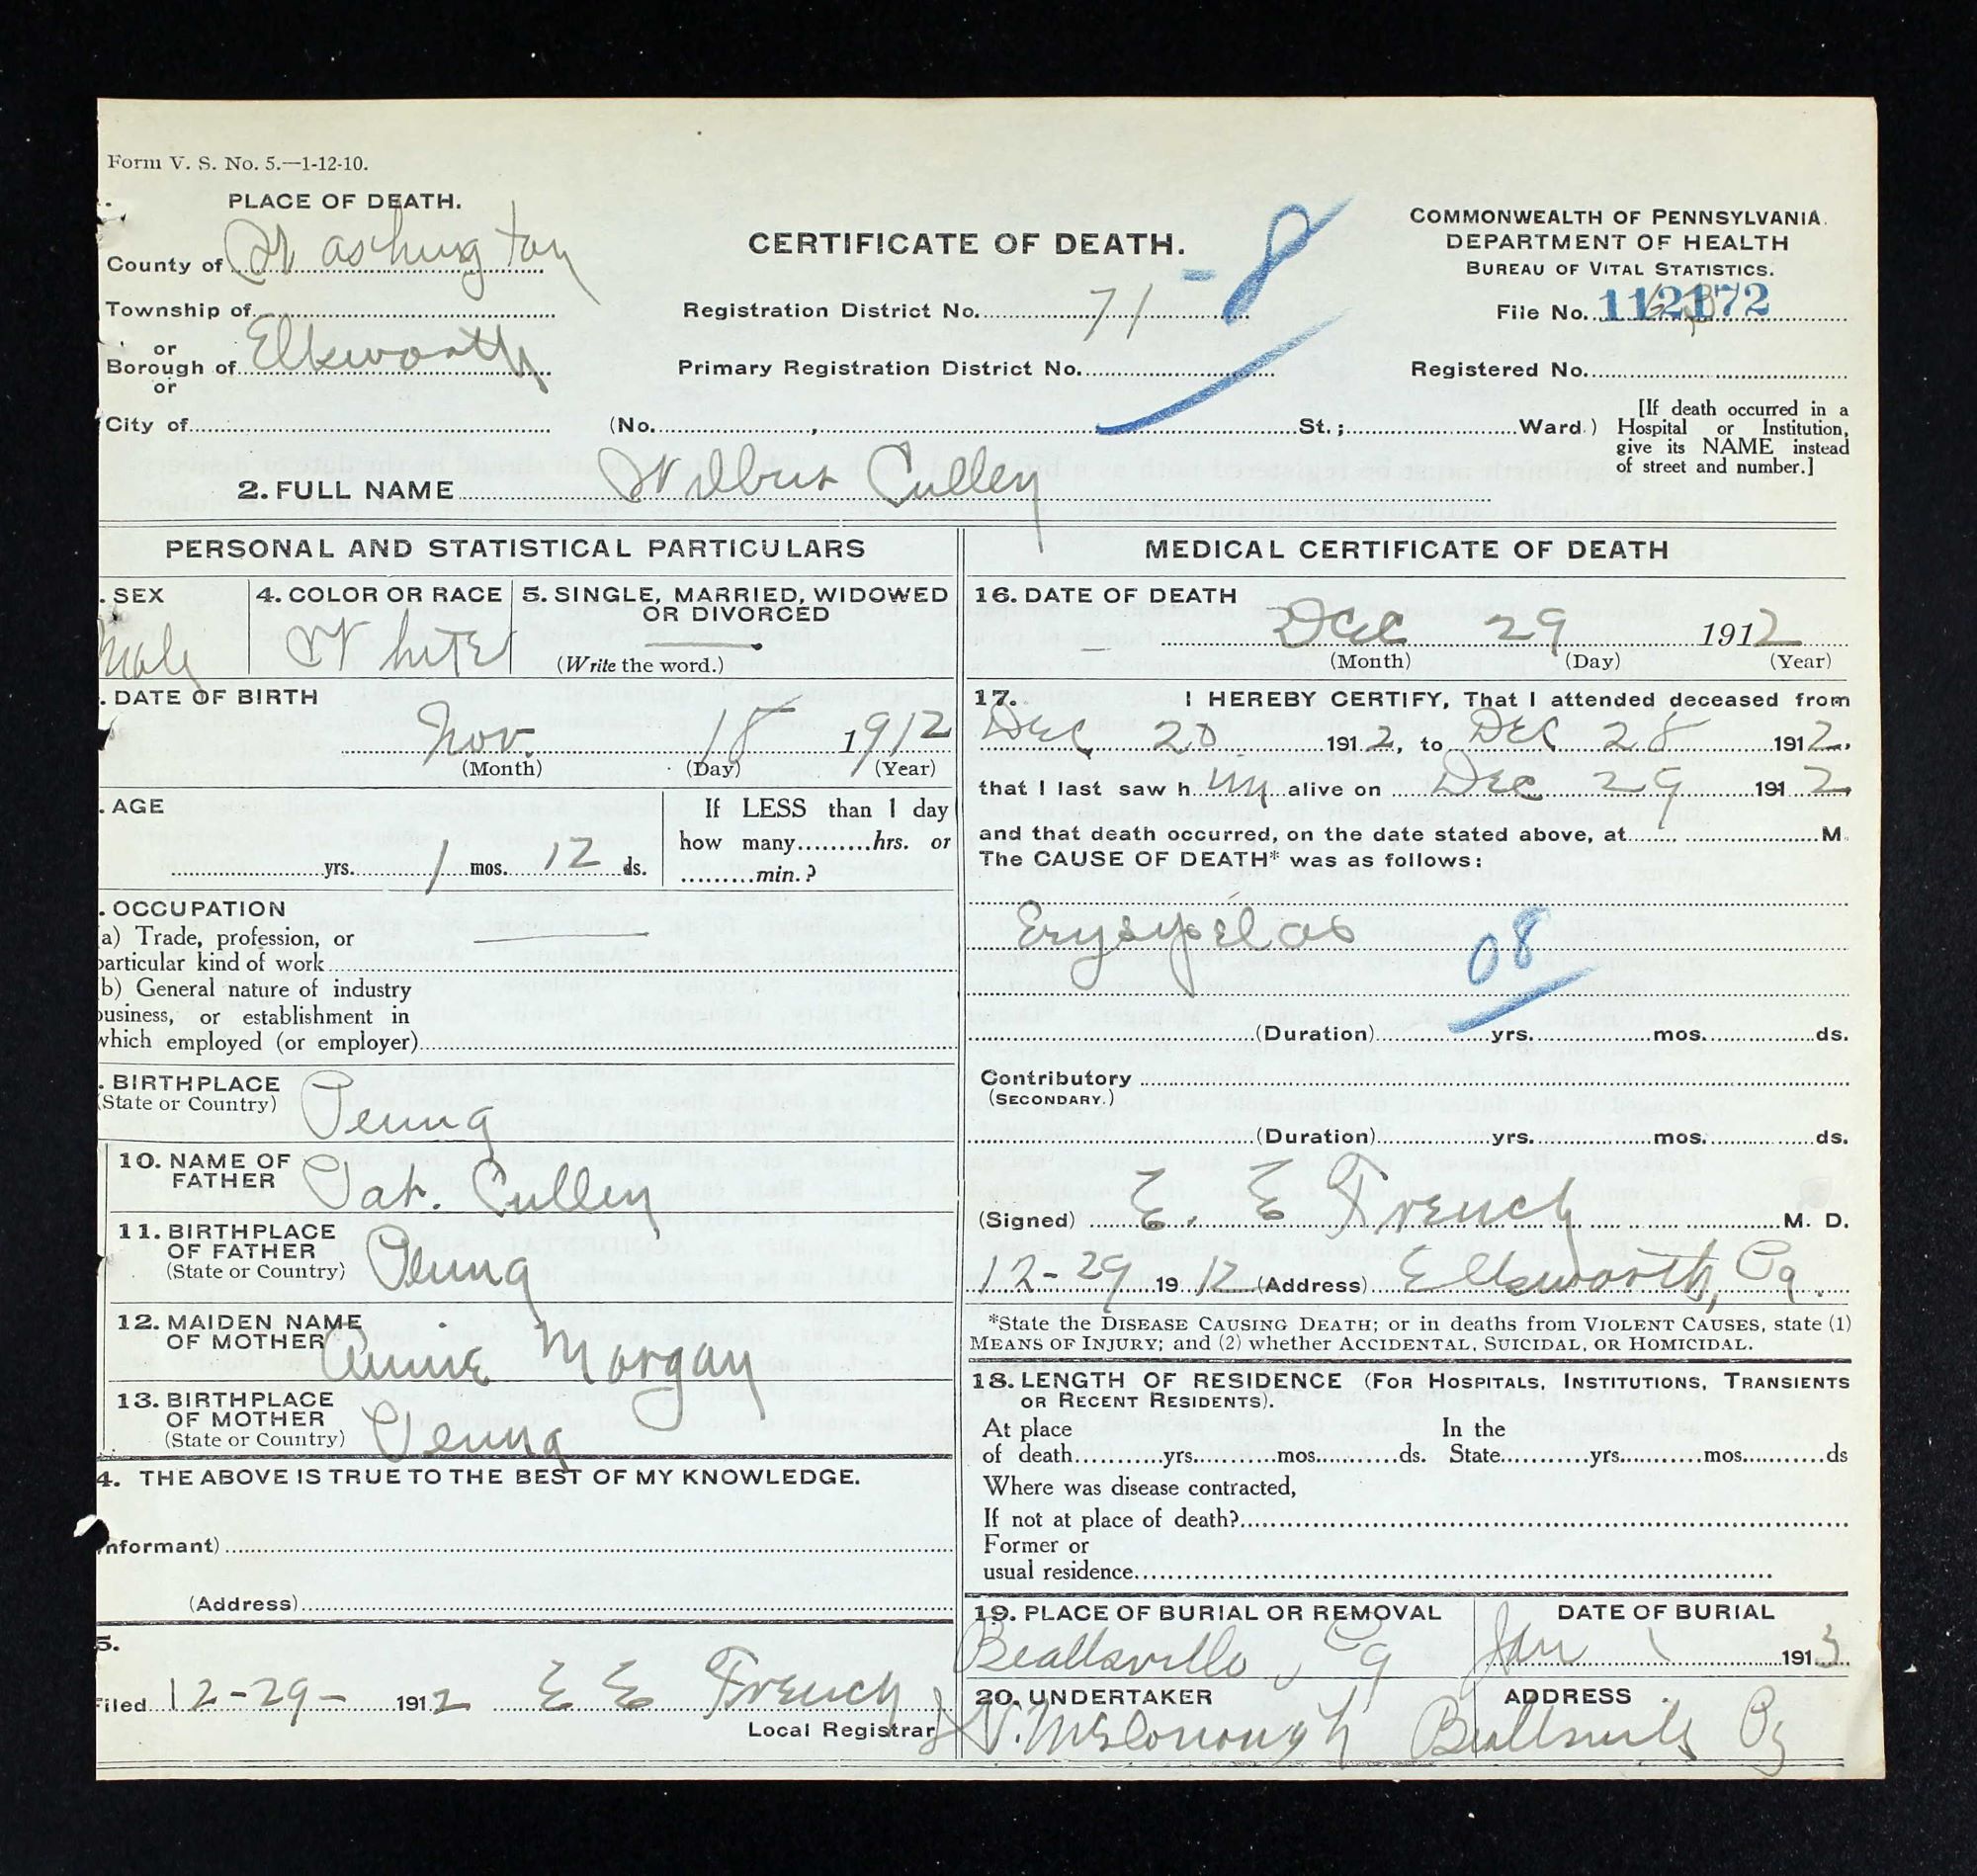 Form V. S. No. 5.—1-12-10.
PLACE OF DEATH.
County of Washington
Township of
or
Borough of Ellsworth
or
City of
CERTIFICATE OF DEATH.
Registration District No. 71 - 8
Primary Registration District No.
(No. , St.; Ward.)
COMMONWEALTH OF PENNSYLVANIA.
DEPARTMENT OF HEALTH
BUREAU OF VITAL STATISTICS.
File No. 112172
Registered No.
[If death occurred in a
Hospital or Institution,
give its NAME instead
of street and number.]
2. FULL NAME Wilbur Culley
PERSONAL AND STATISTICAL PARTICULARS
. SEX
Male
4. COLOR OR RACE
White
5. SINGLE, MARRIED, WIDOWED
OR DIVORCED
(Write the word.)
. DATE OF BIRTH
Nov. 18 1912
(Month) (Day) (Year)
. AGE
yrs. 1 mos. 12 ds.
If LESS than 1 day
how many hrs. or
min.?
. OCCUPATION
a) Trade, profession, or
particular kind of work
b) General nature of industry
business, or establishment in
which employed (or employer)
. BIRTHPLACE
(State or Country)
Penna
10. NAME OF
FATHER
Pat. Culley
11. BIRTHPLACE
OF FATHER
(State or Country)
Penna
12. MAIDEN NAME
OF MOTHER
Annie Morgan
13. BIRTHPLACE
OF MOTHER
(State or Country)
Penna
4. THE ABOVE IS TRUE TO THE BEST OF MY KNOWLEDGE.
nformant)
(Address)
5.
Filed 12-29- 1912 E E French
Local Registrar
MEDICAL CERTIFICATE OF DEATH
16. DATE OF DEATH
Dec 29 1912
(Month) (Day) (Year)
17. I HEREBY CERTIFY, That I attended deceased from
Dec 20 1912, to Dec 28 1912.
that I last saw h im alive on Dec 29 1912
and that death occurred, on the date stated above, at M.
The CAUSE OF DEATH* was as follows:
Erysypelas 08
(Duration) yrs. mos. ds.
Contributory
(SECONDARY.)
(Duration) yrs. mos. ds.
(Signed) E. E French M. D.
12-29 1912 (Address) Ellsworth, Pa.
*State the DISEASE CAUSING DEATH; or in deaths from VIOLENT CAUSES, state (1)
MEANS OF INJURY; and (2) whether ACCIDENTAL, SUICIDAL, OR HOMICIDAL.
18. LENGTH OF RESIDENCE (FOR HOSPITALS, INSTITUTIONS, TRANSIENTS
OR RECENT RESIDENTS).
At place In the
of death yrs. mos. ds. State yrs. mos. ds
Where was disease contracted,
If not at place of death?
Former or
usual residence
19. PLACE OF BURIAL OR REMOVAL
Beallsville Pa
DATE OF BURIAL
Jan 1 1913
20. UNDERTAKER
McDonough
ADDRESS
Beallsville Pa